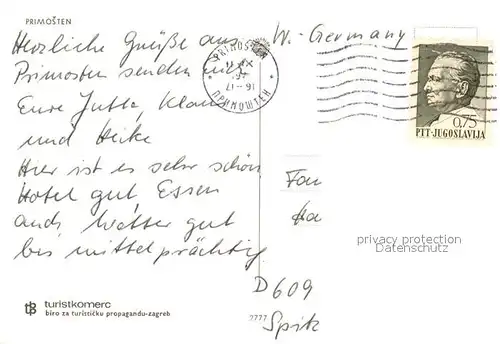 PRIMOŠTEN
Herzliche Grüße aus
Primosten senden
Eure Jutta, Klaus
und Heike
Hier ist es sehr schön
Hotel gut, Essen
auch, Wetter gut
bis mittelprächtig
turistkomerc
biro za turističku propagandu-zagreb
W.-Germany
PRIMOŠTEN
ПРИМОШТЕН
0,75
PTT-JUGOSLAVIJA
privacy protection
Datenschutz
D 609
2777
Spitz